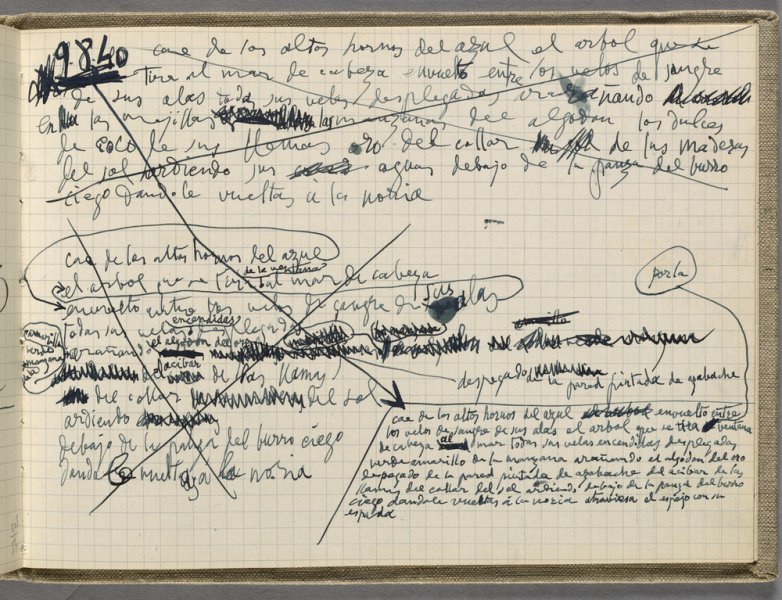 9840
cae de los altos hornos del azul el arbol que se
tira al mar de cabeza envuelto entre los velos de sangre
de sus alas todas sus velas desplegadas arañando
en las mejillas las manzanas del algodon los dulces
de coco de sus llamas oro del collar de las maderas
del sol ardiendo sus aguas debajo de la panza del burro
ciego dandole vueltas à la noria
cae de los altos hornos del azul
de la ventana
el arbol que se tira al mar de cabeza
envuelto entre los velos de sangre de sus alas
encendidas
todas sus velas desplegadas
amarillo
verde
manzana
el algodon del oro
arañando
acibar
de las llamas
del collar del sol
ardiendo
debajo de la panza del burro ciego
dandole vueltas a la noria
por la
despegado de la pared pintada de azabache
cae de los altos hornos del azul envuelto entre
los velos de sangre de sus alas el arbol que se tira ventana
de cabeza al mar todas sus velas encendidas desplegadas
verde amarillo de la manzana arañando el algodon del oro
despegado de la pared pintada de azabache del acibar de las
llamas del collar del sol ardiendo debajo de la panza del burro
ciego dandole vueltas à la noria atraviesa el espejo con su
espada